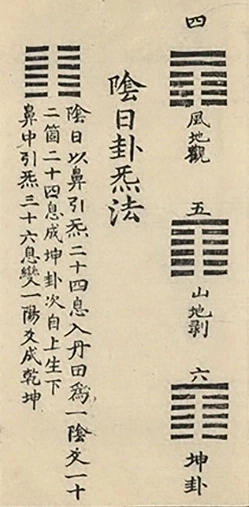 四
風地觀
五
山地剥
六
坤卦
陰日卦炁法
陰日以鼻引炁二十四息入丹田爲一陰爻一十
二箇二十四息成坤卦次自上生下
鼻中引炁三十六息變一陽爻成乾坤